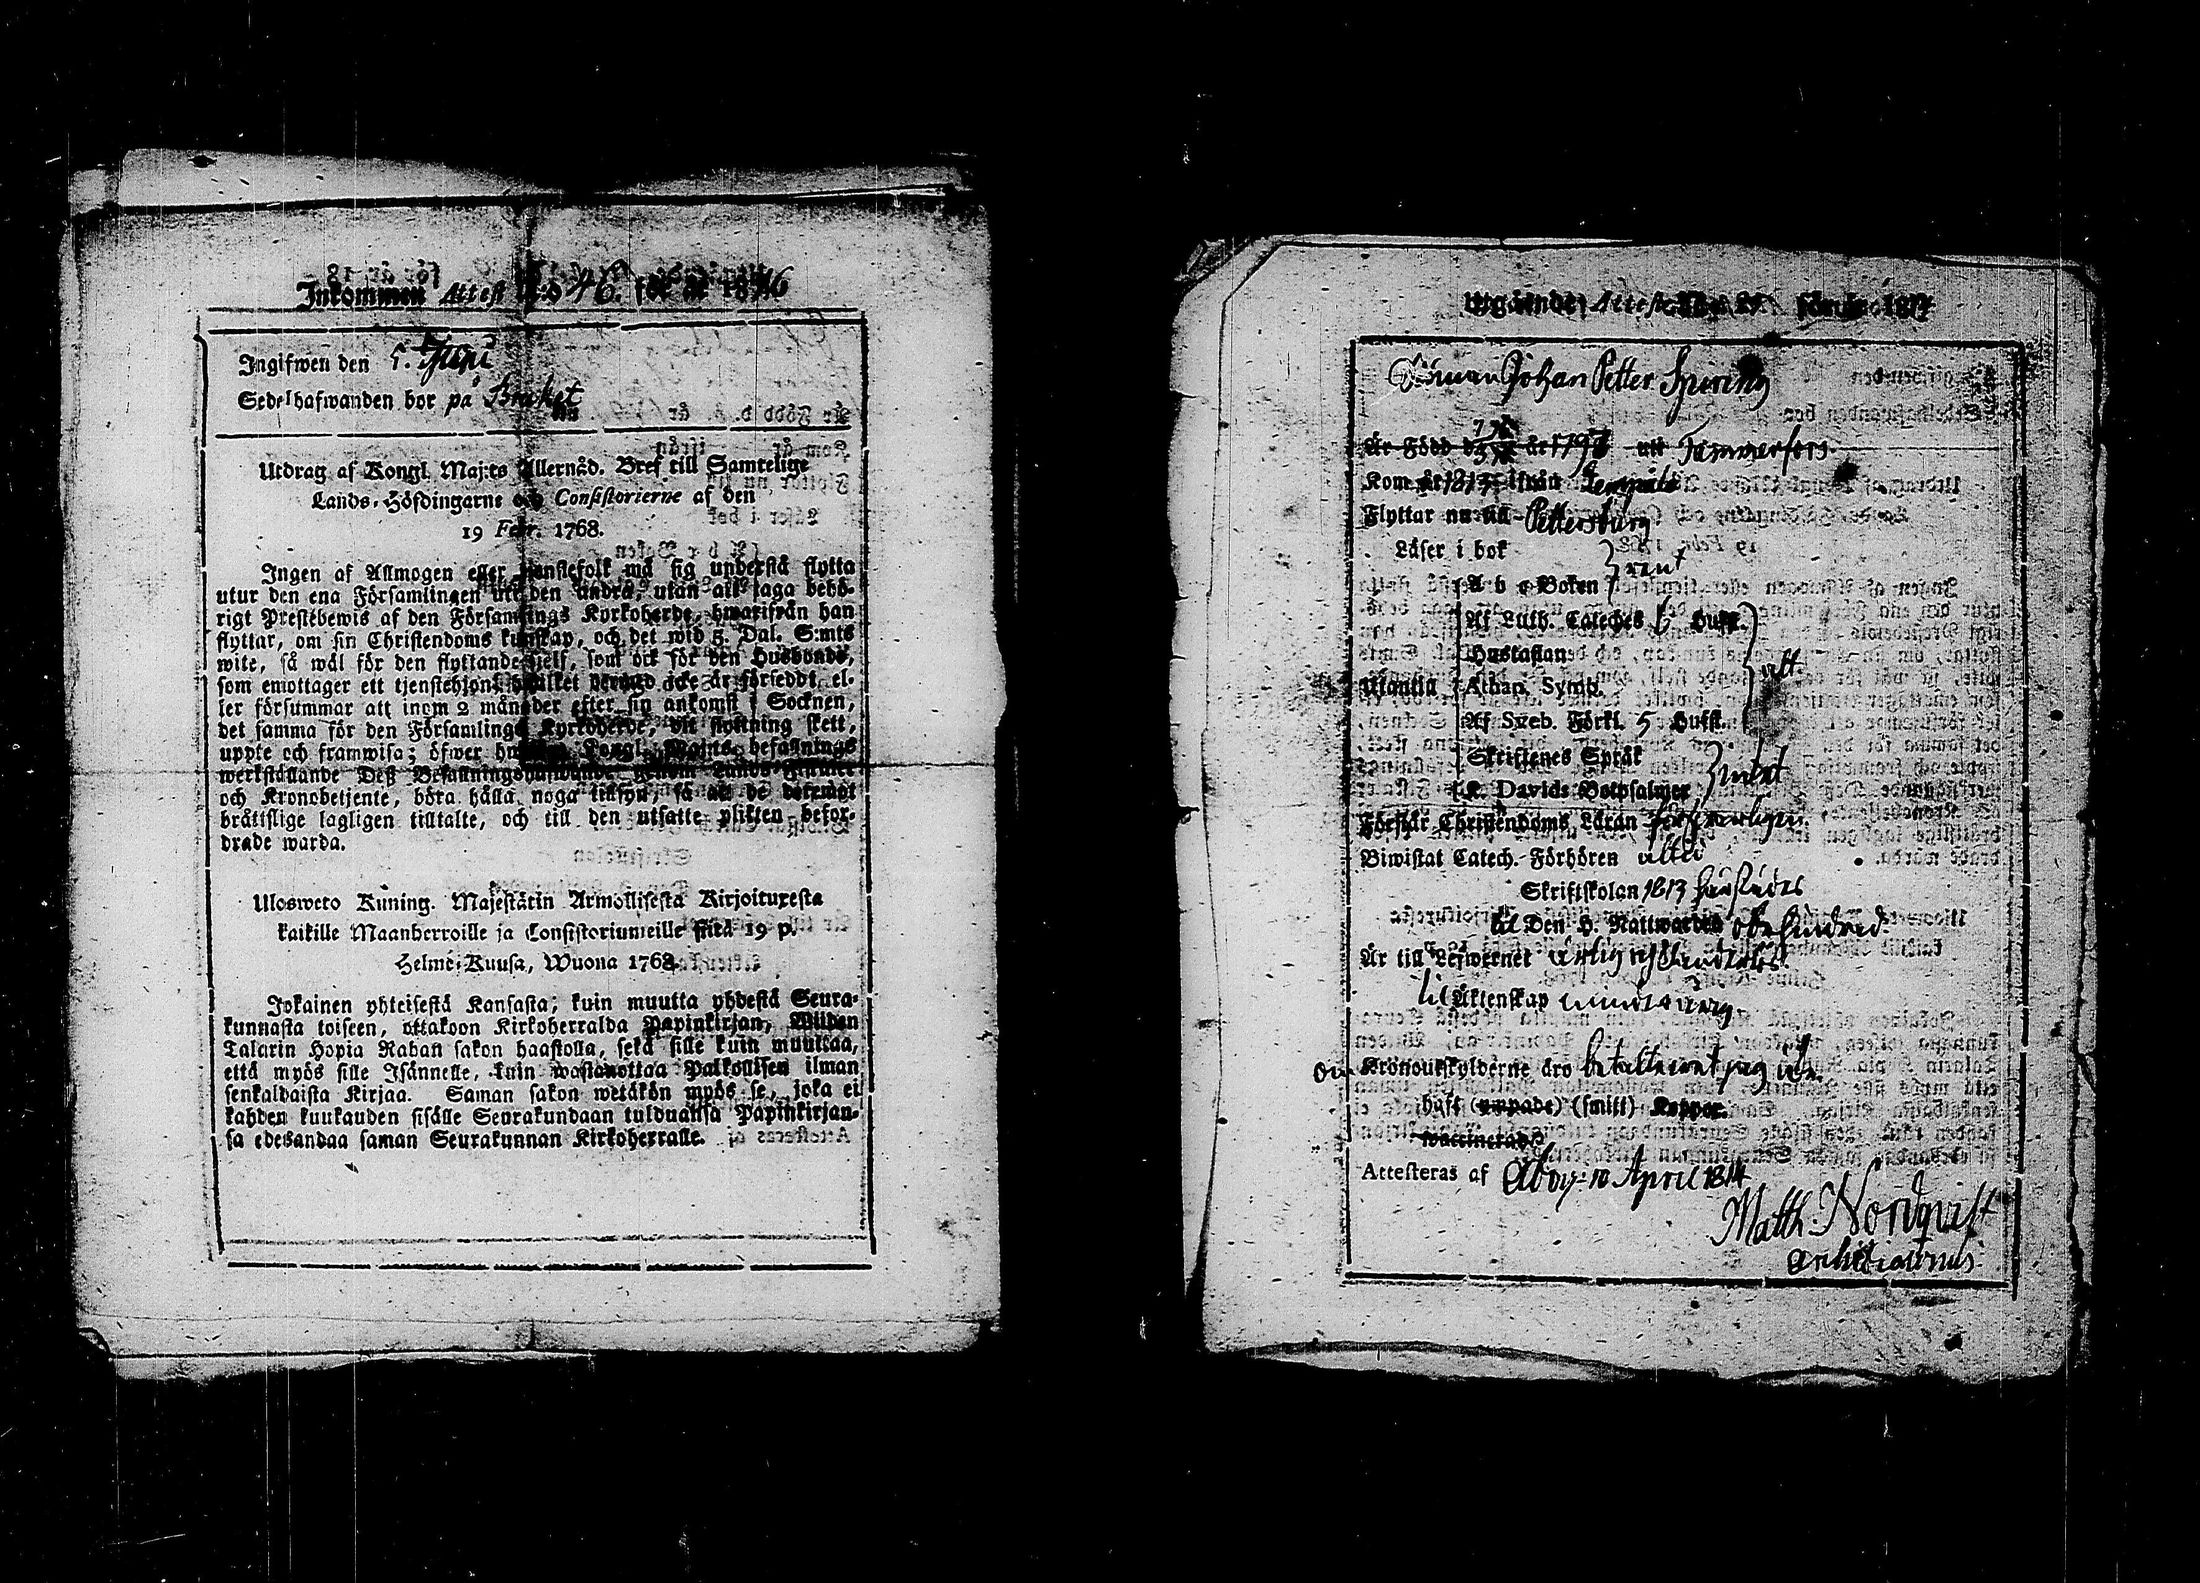 Inkommen Attest N:o 46. för år 1816
Ingifwen den 5. Juni
Sedelhafwanden bor på Bruket
Utdrag af Kongl. Maj:ts Allernåd. Bref till Samtelige
Lands-Höfdingarne och Consistorierne af den
19 Febr. 1768.
Ingen af Allmogen eller tjenstefolk må sig understå flytta
utur den ena Församlingen uti den andra, utan att taga behö-
rigt Prestebewis af den Församlings Kyrkoherde, hwarifrån han
flyttar, om sin Christendoms kunskap, och det wid 5. Dal. S:mts
wite, så wäl för den flyttande sjelf, som ock för den Husbonde,
som emottager ett tjenstehjon, hwilket dermed icke är försedt, el-
ler försummar att inom 2 månader efter sin ankomst i Socknen,
det samma för den Församlings Kyrkoherde, dit flyttning skett,
uppte och framwisa; öfwer hwilken Kongl. Maj:ts befallnings
werkställande Dess Befallningshafwande genom Lands-Fiscaler
och Kronobetjente, böra hålla noga tillsyn, så att de dermot
bråttslige lagligen tilltalte, och till den utsatte plikten befor-
drade warda.
Ulosweto Kuning. Majestätin Armollisesta Kirjoituxesta
kaikille Maanherroille ja Consistoriumeille siitä 19 p.
Helme-Kuusa, Wuona 1768.
Jokainen yhteisestä Kansasta; kuin muutta yhdestä Seura-
kunnasta toiseen, ottakoon Kirkoherralda Papinkirjan, Wiiden
Talarin Hopia Rahan sakon haastolla, sekä sille kuin muuttaa,
että myös sille Isännelle, kuin wastanottaa Palkollisen ilman
senkaldaista Kirjaa. Saman sakon wetäkön myös se, joka ei
kahden kuukauden sisälle Seurakundaan tulduansa Papinkirjan-
sa edesandaa saman Seurakunnan Kirkoherralle.
Utgående Attest N:o 21. för år 1814
Johan Petter Spuring
Är Född d. år 179 uti Tammerfors.
Kom år 1813 ifrån Lempälä
Flyttar nu till Pettersburg
Läser i bok
A b c Boken } rent
Af Luth. Cateches 6 Hufst.
Hustaflan
Utantill Athan. Symb. } allt
Af Sveb. Förkl. 5 Hufst.
Skriftenes Språk
K. Davids Botpsalmer } intet
Förstår Christendoms Läran förswarligen
Biwistat Catech. Förhören alltid
Skriftskolan 1813
till Den H. Nattwarden obehindrad.
Är till Lefwernet ärlig och
till Äktenskap
Kronoutskylderne äro betalte
haft (ympade) (smitt) Koppor.
vaccinerade
Attesteras af Åbo 10 April 1814
Matth. Nordqvist